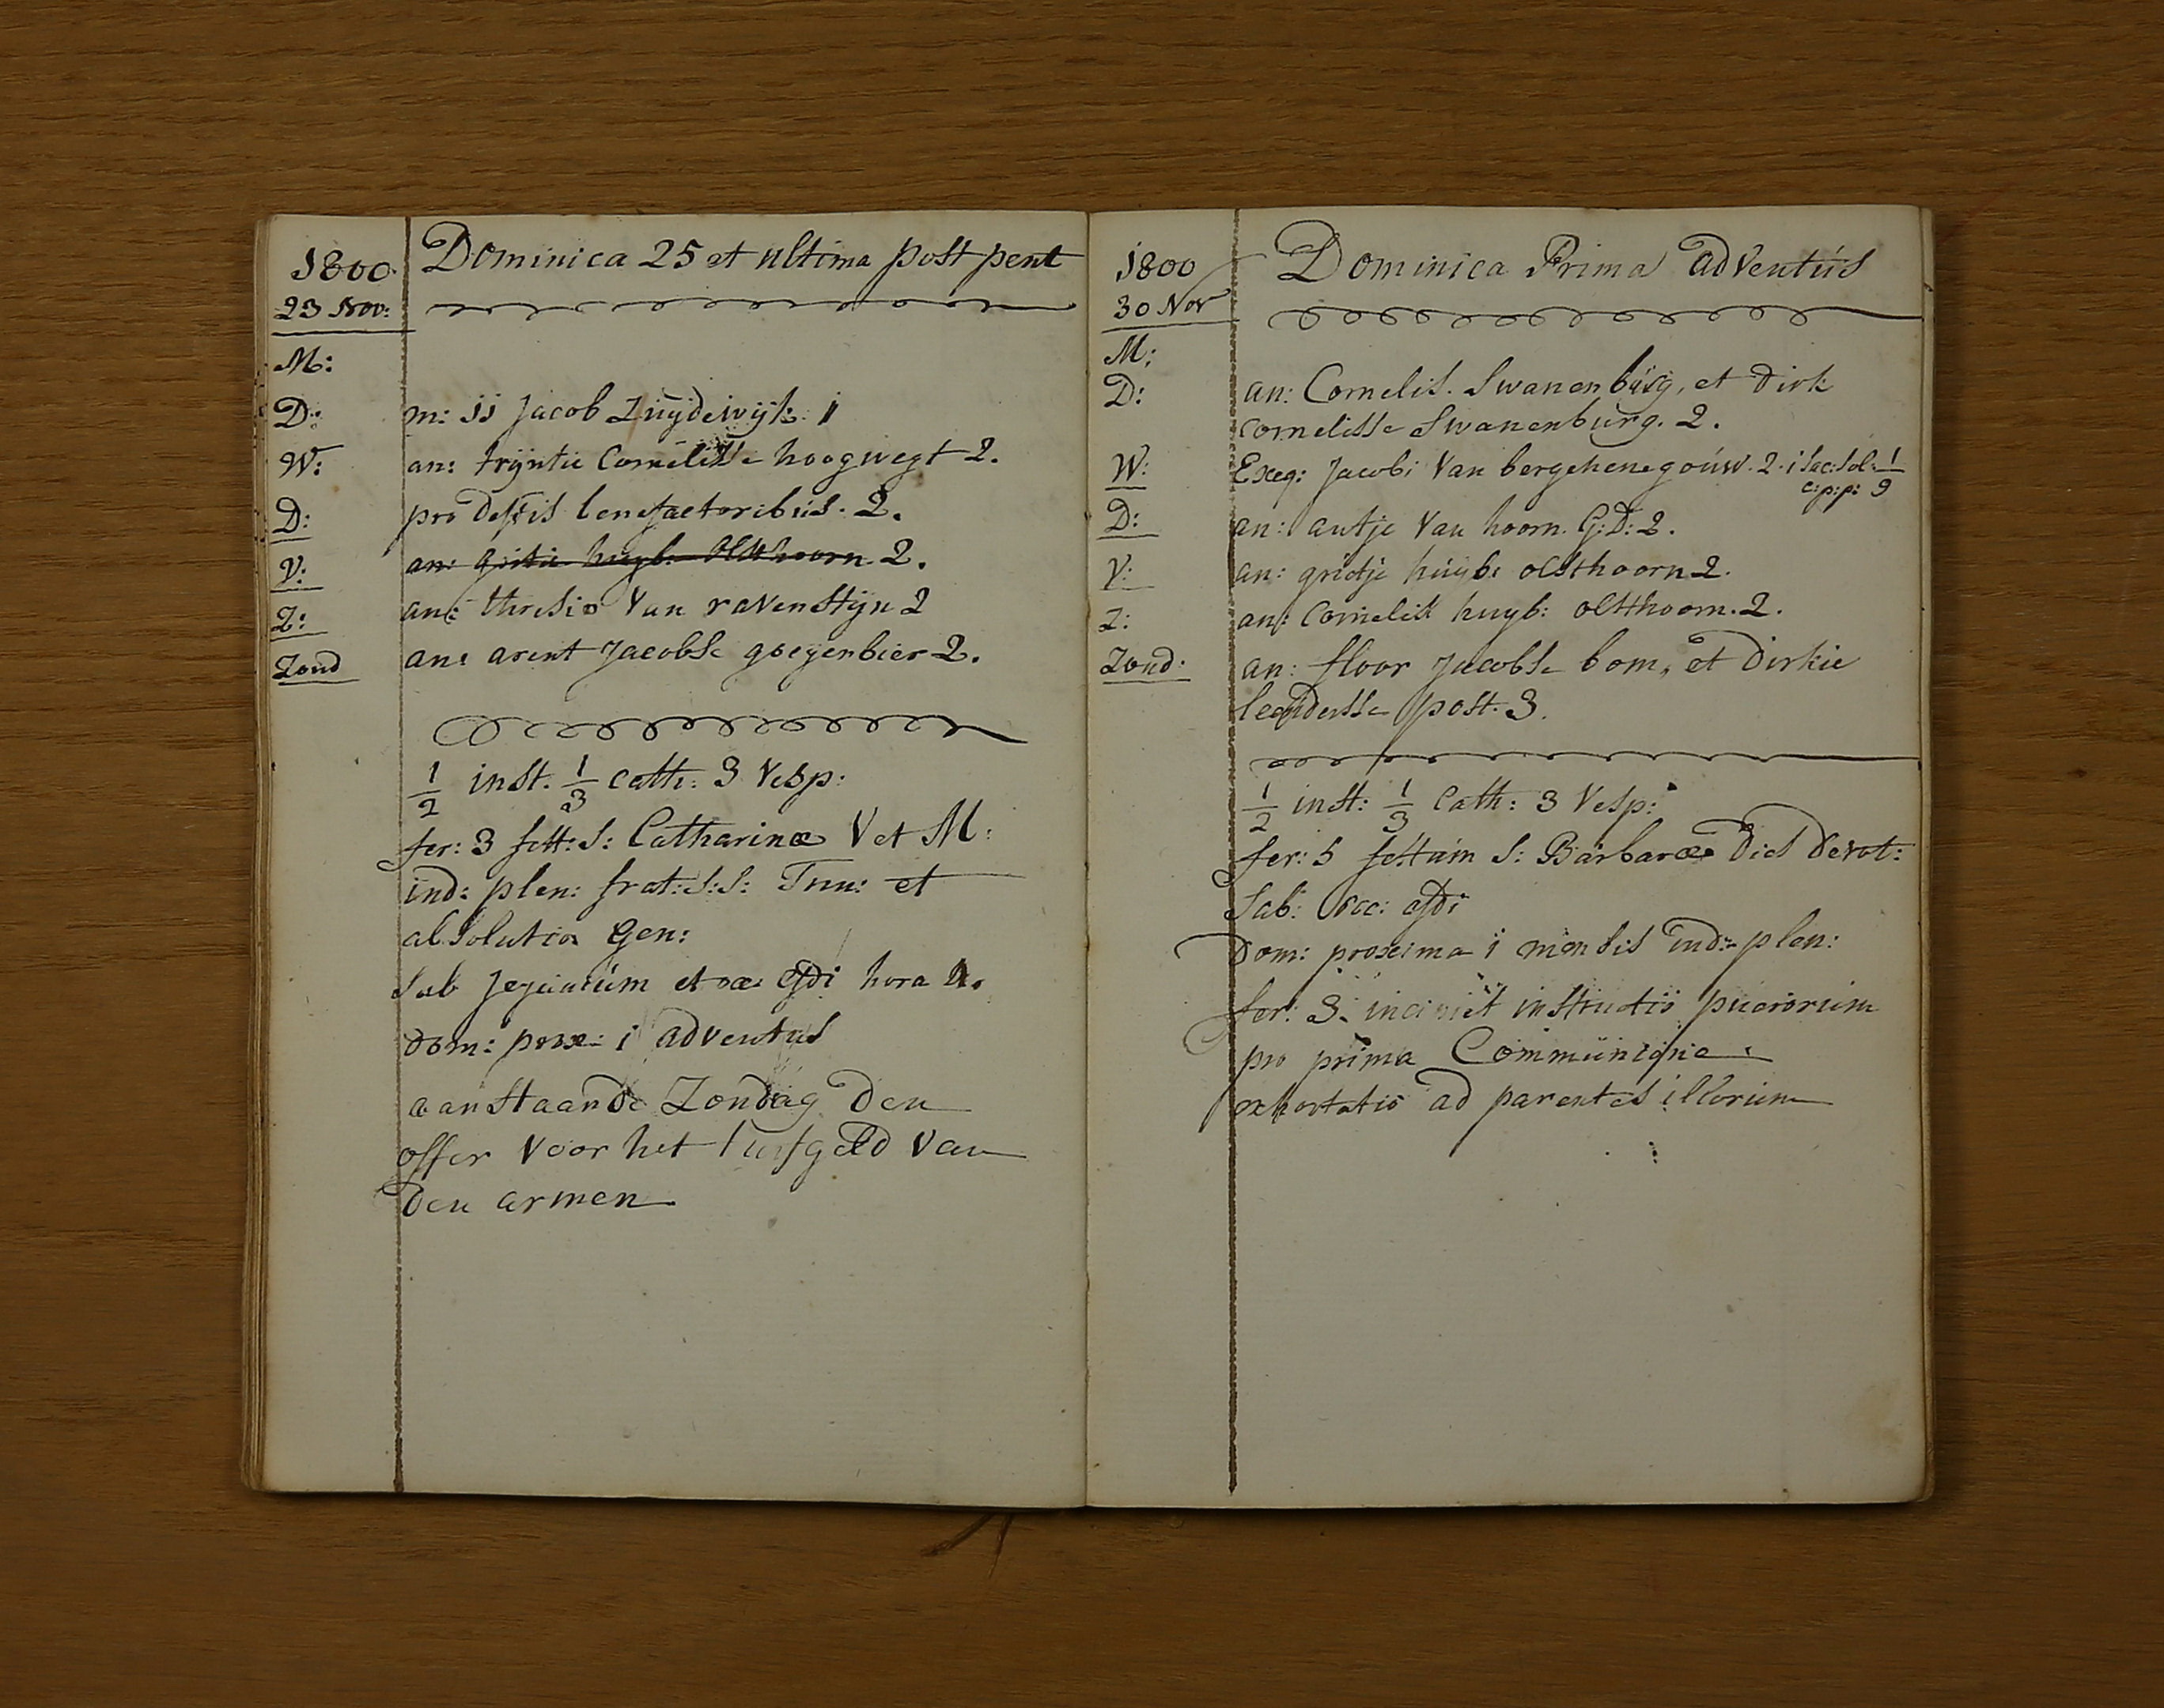 1800.
23 Nov:
Dominica 25 et ultima post pent
M:
D: m: ss Jacob Zuydewyk: 1
W: an: tryntie Cornelisse hoogwegt 2.
D: pro deftis benefactoribus. 2.
V: an: gritie huyb: olsthoorn 2.
Z: an: thresia Van ravenstyn 2
Zond an: arent Jacobse goeyenbier 2.
1/2 inst. 1/3 cath: 3 Vesp:
fer: 3 fest: S: Catharinæ V et M:
ind: plen: frat: S: S: Trin: et
absolutio Gen:
Sab jejunium et hora
dom: prox: 1 adventus
aanstaande Zondag den
offer voor het turfgeld van
den armen
1800
30 Nov
Dominica Prima adventus
M:
D: an: Cornelis. Swanenburg, et Dirk
cornelisse Swanenburg. 2.
W: Exeq: Jacobi Van bergehenegouw. 2. i Sac: Sol: 1
c: p: p: 9
D: an: antje Van hoorn. G: D: 2.
V: an: grietje huyb: olsthoorn 2.
Z: an: Cornelis huyb: olsthoorn. 2.
Zond: an: floor Jacobse bom, et Dirkie
leendertse post. 3.
1/2 inst: 1/3 Cath: 3 Vesp:
fer: 5 festum S: Barbaræ Dies Devot:
Sab:
Dom: proxima i mensis ind: plen:
fer: 3. incipiet instructio puerorum
pro prima Communione
exhortatio ad parentes illorum